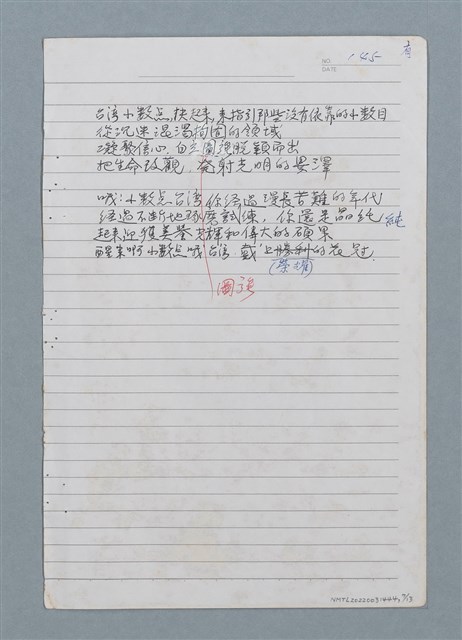 NO. 145
DATE
台湾小數点,快起來,來指引那些没有依靠的小數目
從沉迷混濁拘囿的領域
凝聚信心,自 脱穎而出
把生命改觀,發射光明的恩澤
哦!小數点台湾你經過漫長苦難的年代
經過不斷地琢磨試練,你還是品純 純
起來迎獲美譽光輝和偉大的碩果
醒來啊小數点哦台湾 戴上勝利的花冠
(榮耀)
NMTL20220031444, 7/13